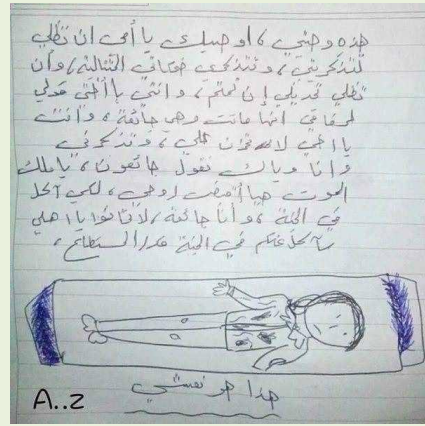 هذه وصيتي، اوصيك يا أمي ان تظلي
تتذكريني، وتتذكري ضحكاتي، وأن
تظلي إن نمتم، وانتي يا أختي قولي
لرفاقي انها ماتت وهي جائعة، وانت
يا اخي لا تحزن علي، وتذكرني
وانا وياك نقول جائعون، يا ملك
الموت هيا اقبض روحي، لكي آكل
في الجنة، وأنا جائعة، لا تخافوا يا اهلي
سآكل عنكم في الجنة قدر المستطاع،
هذا هو نعشي
A..z